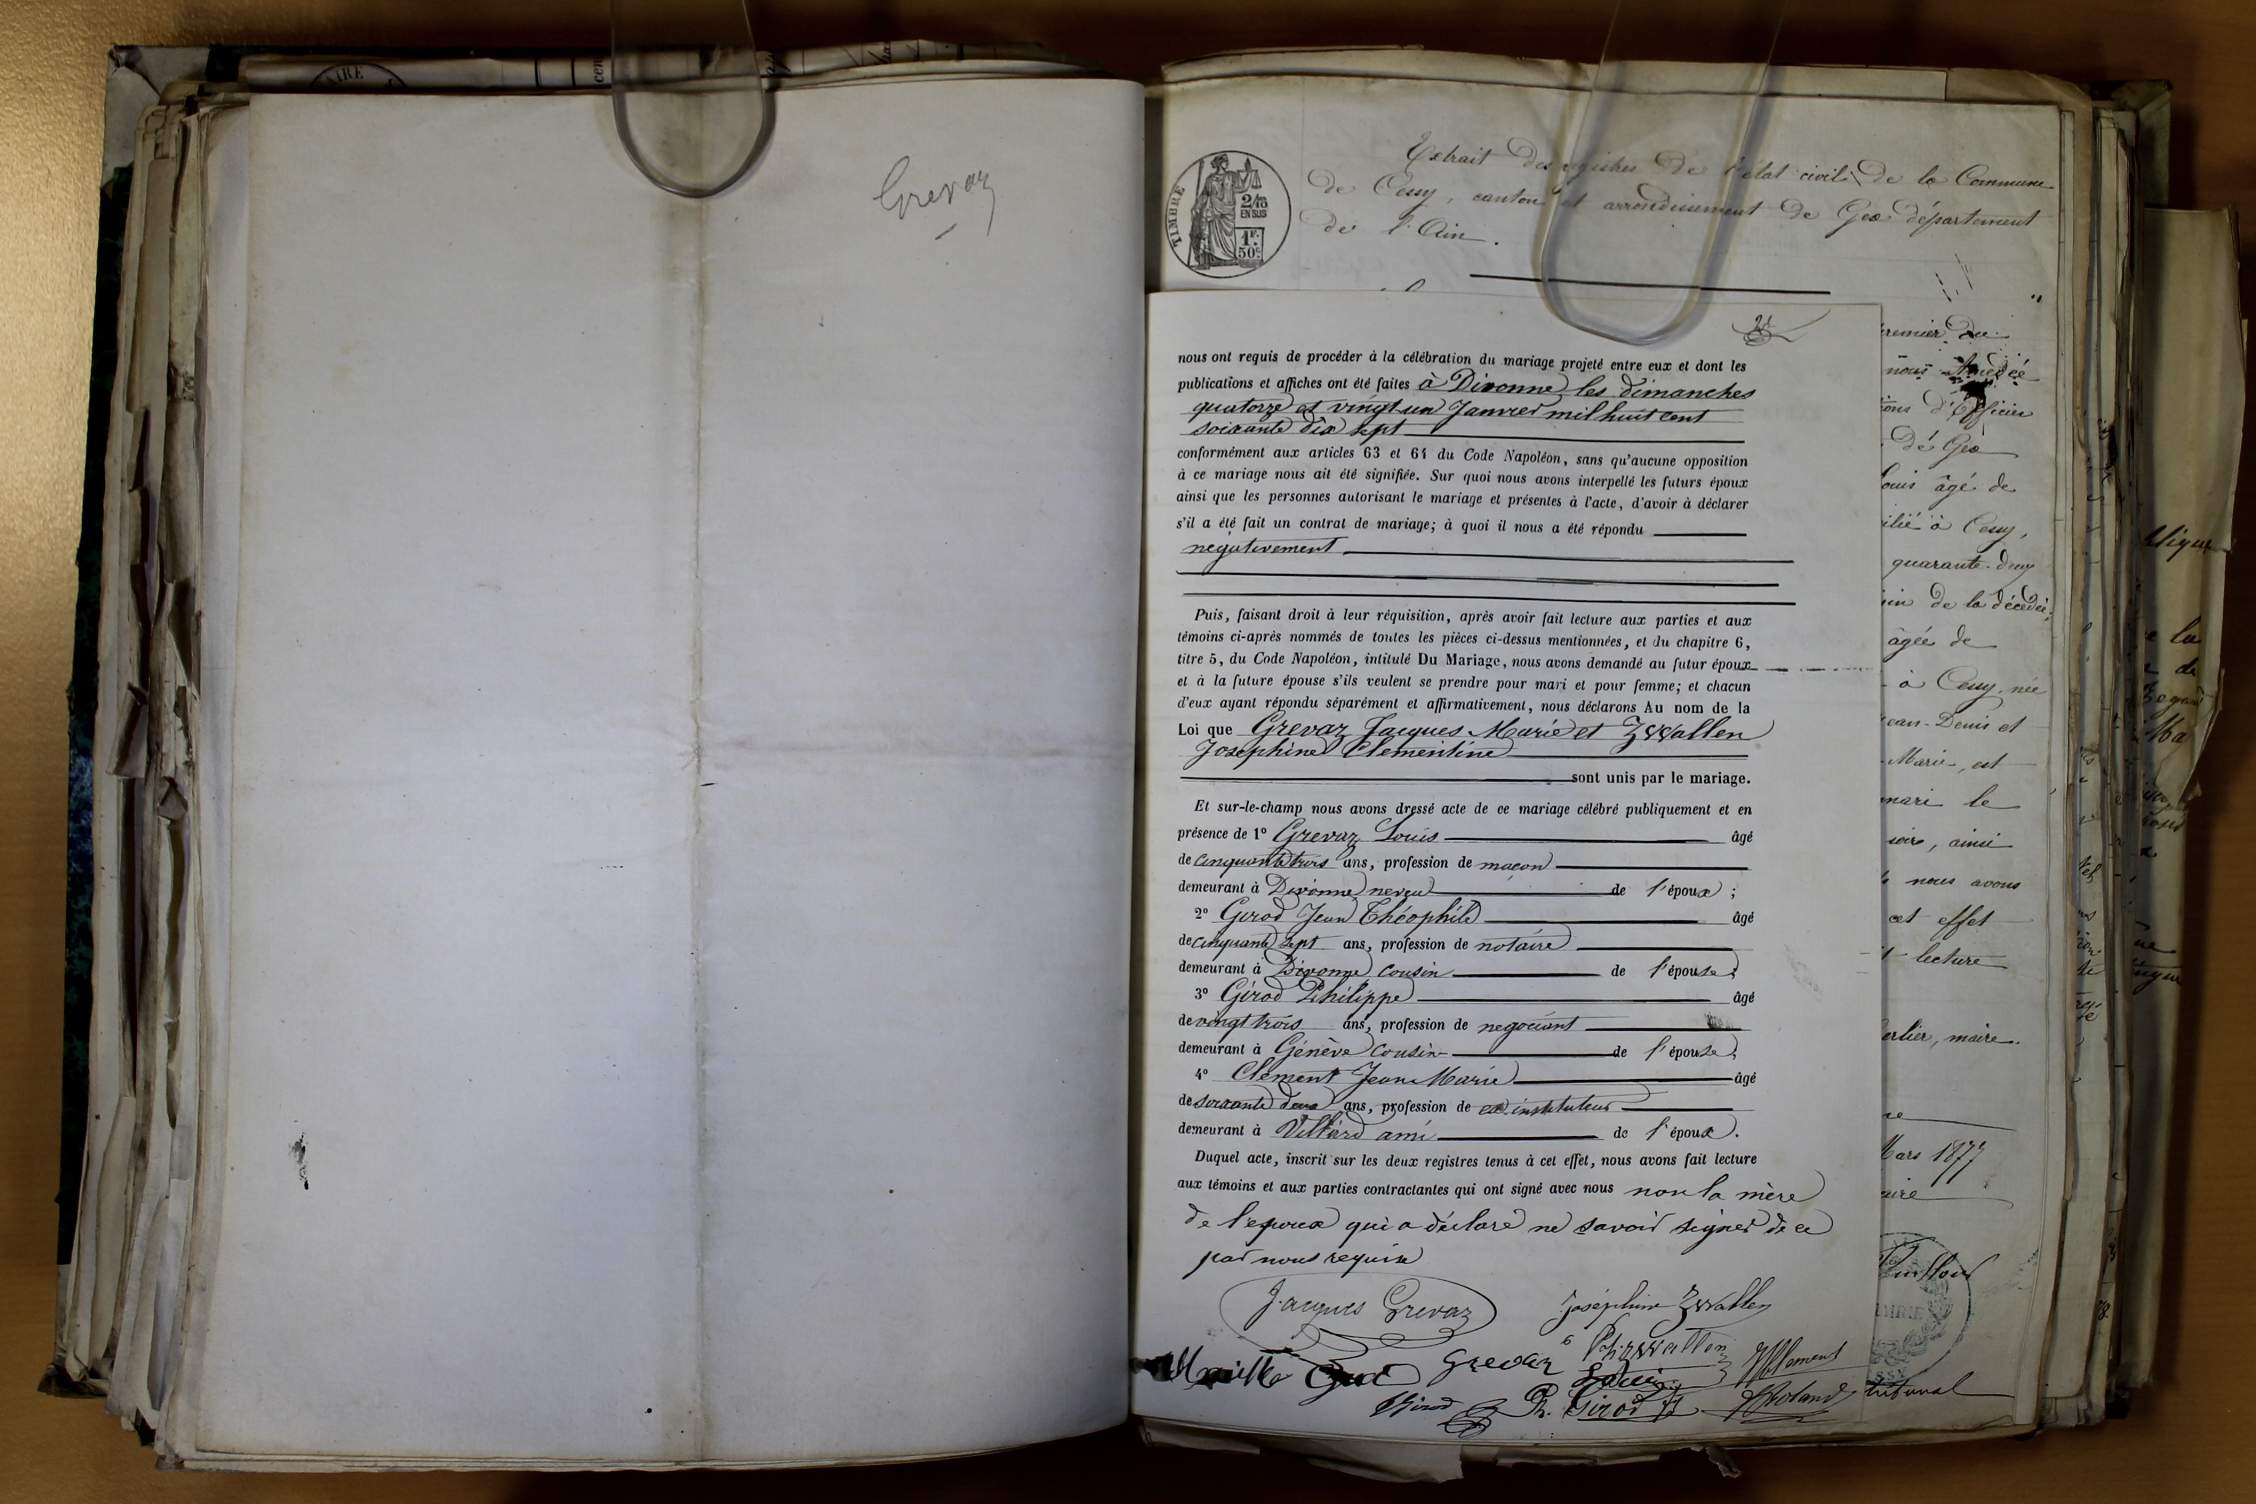 Grevaz
TIMBRE
2/10
EN SUS
1F.
50c
Extrait des registres de l'état civil de la Commune
de Cessy, canton et arrondissement de Gex département
de l'Ain.
2d
nous ont requis de procéder à la célébration du mariage projeté entre eux et dont les
publications et affiches ont été faites à Divonne les dimanches
quatorze et vingt un Janvier mil huit cent
soixante dix sept
conformément aux articles 63 et 64 du Code Napoléon, sans qu'aucune opposition
à ce mariage nous ait été signifiée. Sur quoi nous avons interpellé les futurs époux
ainsi que les personnes autorisant le mariage et présentes à l'acte, d'avoir à déclarer
s'il a été fait un contrat de mariage; à quoi il nous a été répondu
négativement
Puis, faisant droit à leur réquisition, après avoir fait lecture aux parties et aux
témoins ci-après nommés de toutes les pièces ci-dessus mentionnées, et du chapitre 6,
titre 5, du Code Napoléon, intitulé Du Mariage, nous avons demandé au futur époux
et à la future épouse s'ils veulent se prendre pour mari et pour femme; et chacun
d'eux ayant répondu séparément et affirmativement, nous déclarons Au nom de la
Loi que Grevaz Jacques Marie et Zwallen
Joséphine Clementine
sont unis par le mariage.
Et sur-le-champ nous avons dressé acte de ce mariage célébré publiquement et en
présence de 1° Grevaz Louis âgé
de cinquante trois ans, profession de maçon
demeurant à Divonne neveu de l'époux ;
2° Girod Jean Théophile âgé
de cinquante sept ans, profession de notaire
demeurant à Divonne cousin de l'épouse ;
3° Girod Philippe âgé
de vingt trois ans, profession de négociant
demeurant à Génève cousin de l'épouse ;
4° Clement Jean Marie âgé
de soixante deux ans, profession de ex instituteur
demeurant à Villard ami de l'époux.
Duquel acte, inscrit sur les deux registres tenus à cet effet, nous avons fait lecture
aux témoins et aux parties contractantes qui ont signé avec nous non la mère
de l'epoux qui a déclaré ne savoir signer de ce
par nous requise
Jacques Grevaz
Joséphine Zwallen
Grevaz
Louis
Clement
Girod
Ph. Girod
Roland
tribunal
premier du
nous Amédée
d'Officier
de Gex
Louis âgé de
à Cessy,
quarante-deux
de la décédée;
âgée de
à Cessy, née
Jean-Denis et
Marie, est
mari le
soir, ainsi
nous avons
cet effet
lecture
maire.
Mars 1877
MAIRIE
la
de